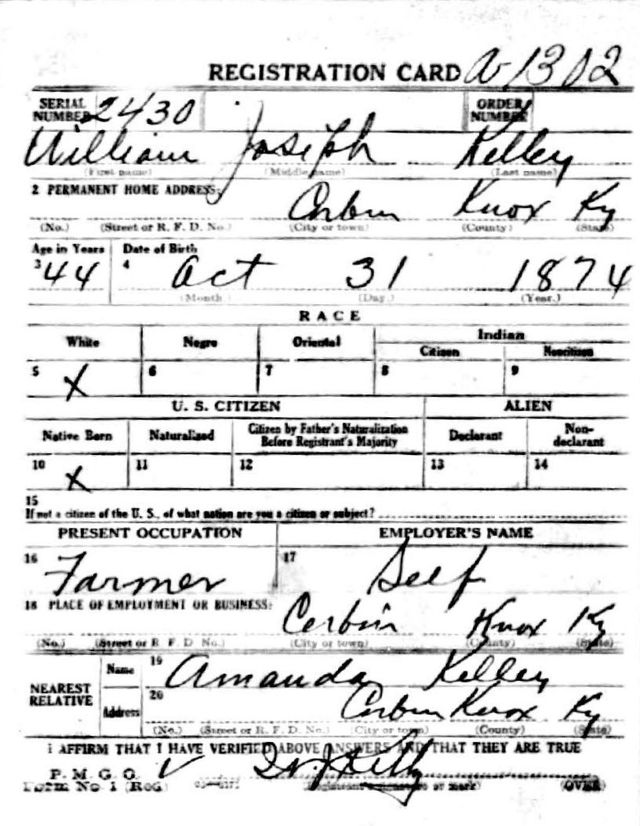 REGISTRATION CARD A 1302
SERIAL NUMBER 2430 ORDER NUMBER
William Joseph Kelley
(First name) (Middle name) (Last name)
2 PERMANENT HOME ADDRESS:
Corbin Knox Ky
(No.) (Street or R. F. D. No.) (City or town) (County) (State)
Age in Years Date of Birth
3 44 4 Oct 31 1874
(Month.) (Day.) (Year.)
RACE
White Negro Oriental Indian
Citizen Noncitizen
5 X 6 7 8 9
U. S. CITIZEN ALIEN
Native Born Naturalized Citizen by Father's Naturalization Before Registrant's Majority Declarant Non-declarant
10 X 11 12 13 14
15
If not a citizen of the U. S., of what nation are you a citizen or subject?
PRESENT OCCUPATION EMPLOYER'S NAME
16 Farmer 17 Self
18 PLACE OF EMPLOYMENT OR BUSINESS:
Corbin Knox Ky
(No.) (Street or R. F. D. No.) (City or town) (County) (State)
NEAREST RELATIVE Name 19 Amanda Kelley
Address 20 Corbin Knox Ky
(No.) (Street or R. F. D. No.) (City or town) (County) (State)
I AFFIRM THAT I HAVE VERIFIED ABOVE ANSWERS AND THAT THEY ARE TRUE
P. M. G. O.
Form No 1 (Red) (Registrant's signature or mark) (OVER)